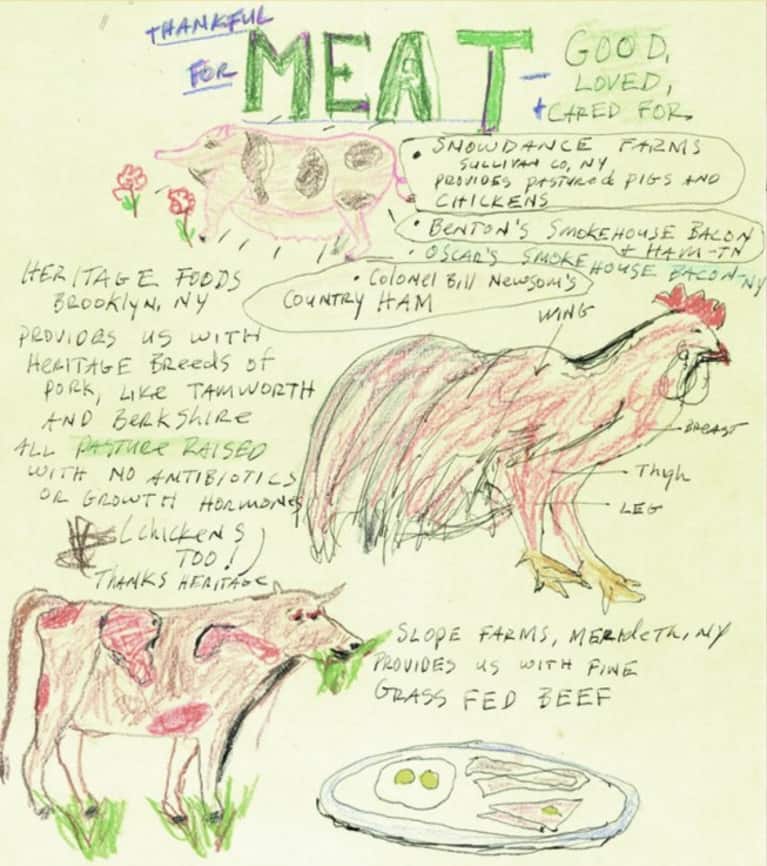 THANKFUL
FOR
MEAT -
GOOD,
LOVED,
+ CARED FOR.
• SNOWDANCE FARMS
SULLIVAN CO, NY
PROVIDES PASTURED PIGS AND
CHICKENS
• BENTON'S SMOKEHOUSE BACON
+ HAM-TN
• OSCAR'S SMOKEHOUSE BACON-NY
• Colonel Bill Newsom's
COUNTRY HAM
HERITAGE FOODS
BROOKLYN, NY
PROVIDES US WITH
HERITAGE BREEDS OF
PORK, LIKE TAMWORTH
AND BERKSHIRE
ALL PASTURE RAISED
WITH NO ANTIBIOTICS
OR GROWTH HORMONES
(Chickens
TOO!)
THANKS HERITAGE
WING
BREAST
Thigh
LEG
SLOPE FARMS, MERIDETH, NY
PROVIDES US WITH FINE
GRASS FED BEEF